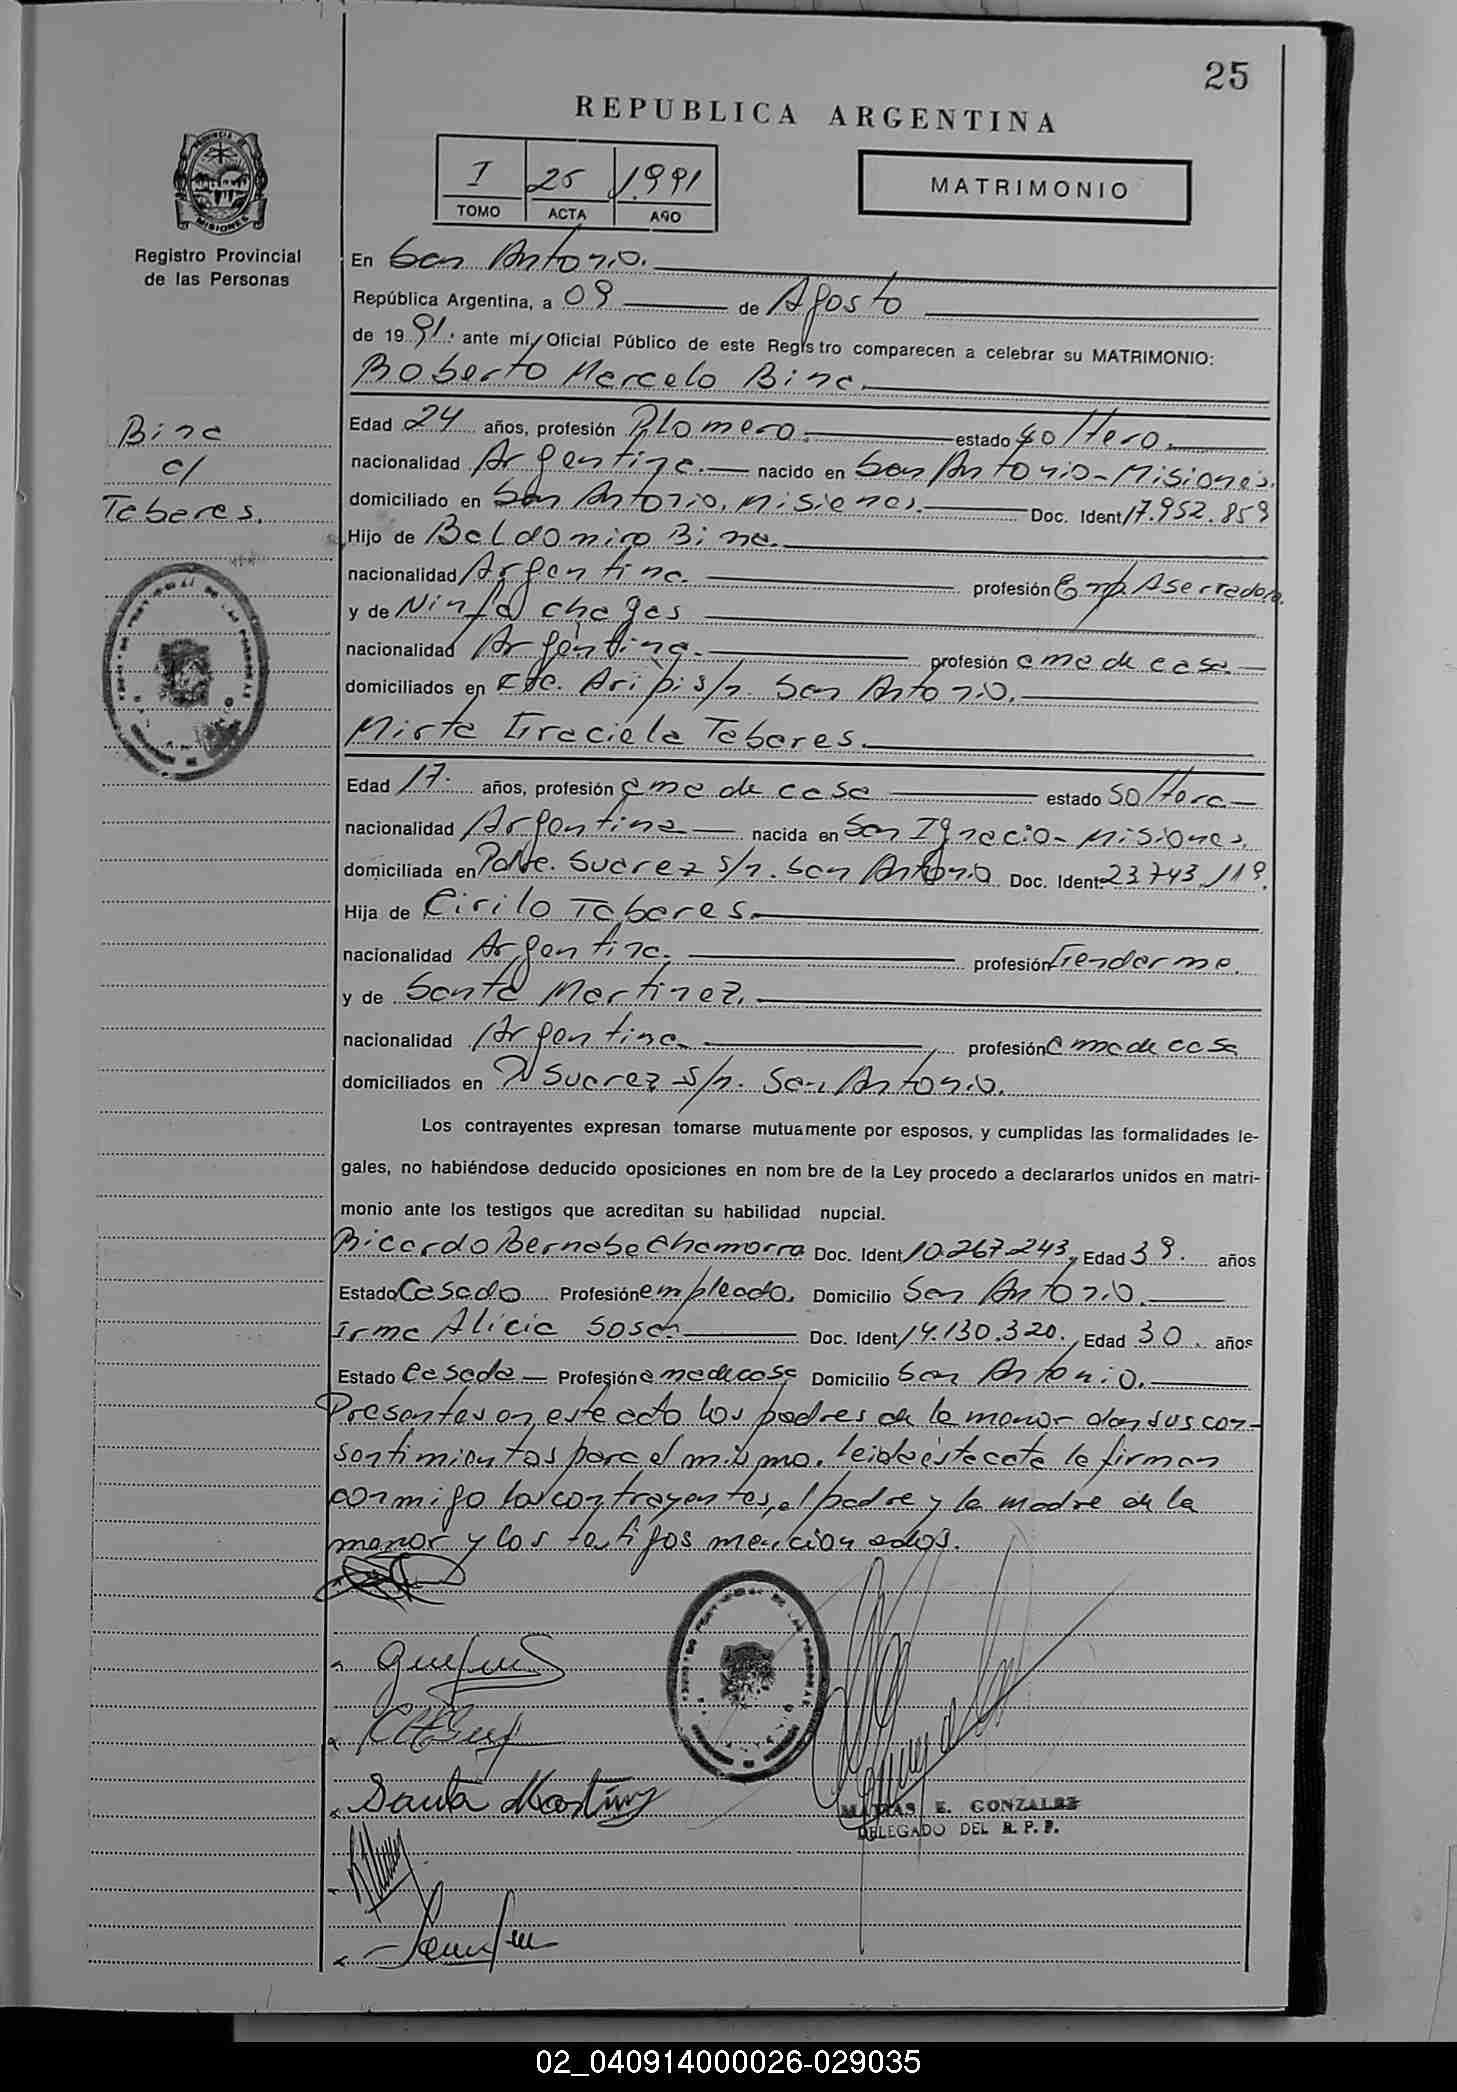 25
REPUBLICA ARGENTINA
I 25 1.991
TOMO ACTA AÑO
MATRIMONIO
PROVINCIA DE MISIONES
Registro Provincial
de las Personas
En San Antonio.
República Argentina, a 09 de Agosto
de 1991. ante mí, Oficial Público de este Registro comparecen a celebrar su MATRIMONIO:
Roberto Marcelo Bina
Bina
c/
Taberes.
Edad 24 años, profesión Plomero. estado soltero.
nacionalidad Argentina. nacido en San Antonio - Misiones.
domiciliado en San Antonio, Misiones. Doc. Ident 17.952.859
Hijo de Baldomiro Bina.
nacionalidad Argentina. profesión Emp. Aserradero.
y de Ninfa Chages
nacionalidad Argentina. profesión ama de casa
domiciliados en s/n. San Antonio.
Mirta Graciela Taberes.
Edad 17. años, profesión ama de casa estado soltera
nacionalidad Argentina nacida en San Ignacio - Misiones.
domiciliada en Pdte. Suarez s/n. San Antonio Doc. Ident. 23.743.119.
Hija de Cirilo Taberes.
nacionalidad Argentina. profesión Gendarme.
y de Santa Martinez.
nacionalidad Argentina profesión ama de casa
domiciliados en P Suarez s/n. San Antonio.
Los contrayentes expresan tomarse mutuamente por esposos, y cumplidas las formalidades le-
gales, no habiéndose deducido oposiciones en nom bre de la Ley procedo a declararlos unidos en matri-
monio ante los testigos que acreditan su habilidad nupcial.
Ricardo Bernabe Chamorra Doc. Ident 10.267.243, Edad 39. años
Estado Casado Profesión empleado. Domicilio San Antonio.
Irma Alicia Sosa. Doc. Ident 14.130.320. Edad 30. años
Estado Casada Profesión ama de casa Domicilio San Antonio.
Presentes en este acto los padres de la menor dan sus con-
sentimientos para el mismo. leida ésta acta la firman
conmigo los contrayentes, el padre y la madre de la
menor y los testigos mencionados.
Santa Martinez
MATIAS E. GONZALEZ
DELEGADO DEL R. P. P.
02_040914000026-029035